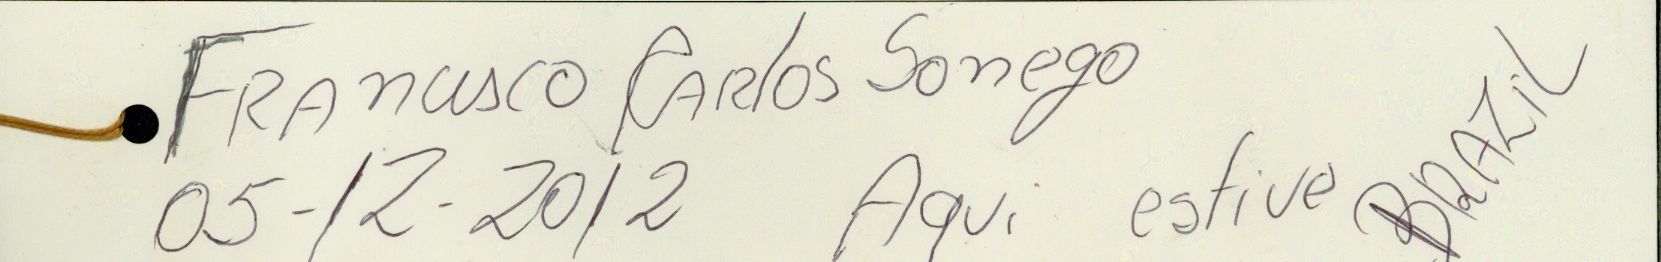 FRANcisco CARlos Sonego
05-12-2012 Aqui estive BRAZiL